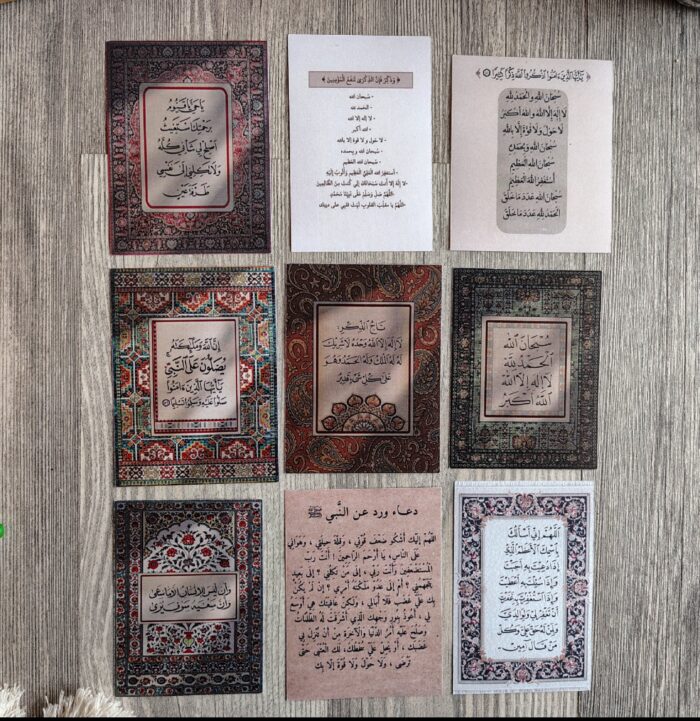 يَا حَيُّ يَا قَيُّومُ
بِرَحْمَتِكَ أَسْتَغِيثُ
أَصْلِحْ لِي شَأْنِي كُلَّهُ
وَلَا تَكِلْنِي إِلَى نَفْسِي
طَرْفَةَ عَيْنٍ
﴿ وَذَكِّرْ فَإِنَّ الذِّكْرَى تَنفَعُ الْمُؤْمِنِينَ ﴾
- سُبحان الله
- الحَمد لله
- لا إله إلا الله
- الله أكبر
- لا حَول ولا قوة إلا بالله
- سُبحان الله وبحمده
- سُبحان الله العظيم
- أستغفر الله العظيم وأتوب إليه
- لا إله إلا أنت سبحانك إني كنت من الظالمين
- اللهم صل وسلم على نبينا محمد
- اللهم يا مقلب القلوب ثبت قلبي على دينك
﴿ يَا أَيُّهَا الَّذِينَ آمَنُوا اذْكُرُوا اللَّهَ ذِكْرًا كَثِيرًا ﴾
سُبْحَانَ اللهِ وَالْحَمْدُ لِلَّهِ
لَا إِلَهَ إِلَّا اللهُ وَاللهُ أَكْبَرُ
لَا حَوْلَ وَلَا قُوَّةَ إِلَّا بِاللهِ
سُبْحَانَ اللهِ وَبِحَمْدِهِ
سُبْحَانَ اللهِ الْعَظِيمِ
أَسْتَغْفِرُ اللهَ الْعَظِيمَ
سُبْحَانَ اللهِ عَدَدَ مَا خَلَقَ
الْحَمْدُ لِلَّهِ عَدَدَ مَا خَلَقَ
إِنَّ اللَّهَ وَمَلَائِكَتَهُ
يُصَلُّونَ عَلَى النَّبِيِّ
يَا أَيُّهَا الَّذِينَ آمَنُوا
صَلُّوا عَلَيْهِ وَسَلِّمُوا تَسْلِيمًا
تَاجُ الذِّكْرِ:
لَا إِلَهَ إِلَّا اللهُ وَحْدَهُ لَا شَرِيكَ
لَهُ لَهُ الْمُلْكُ وَلَهُ الْحَمْدُ وَهُوَ
عَلَى كُلِّ شَيْءٍ قَدِيرٌ
سُبْحَانَ اللهِ
الْحَمْدُ لِلَّهِ
لَا إِلَهَ إِلَّا اللهُ
اللهُ أَكْبَرُ
وَأَن لَّيْسَ لِلْإِنسَانِ إِلَّا مَا سَعَى
وَأَنَّ سَعْيَهُ سَوْفَ يُرَى
دعاء ورد عن النَّبي ﷺ
اللَّهُمَّ إِلَيْكَ أَشْكُو ضَعْفَ قُوَّتِي ، وَقِلَّةَ حِيلَتِي ، وَهَوَانِي
عَلَى النَّاسِ، يَا أَرْحَمَ الرَّاحِمِينَ ! أَنْتَ رَبُّ
الْمُسْتَضْعَفِينَ وَأَنْتَ رَبِّي ، إِلَى مَنْ تَكِلُنِي ؟ إِلَى بَعِيدٍ
يَتَجَهَّمُنِي ؟ أَمْ إِلَى عَدُوٍّ مَلَّكْتَهُ أَمْرِي ؟ إِنْ لَمْ يَكُنْ
بِكَ عَلَيَّ غَضَبٌ فَلَا أُبَالِي ، وَلَكِنَّ عَافِيَتَكَ هِيَ أَوْسَعُ
لِي ، أَعُوذُ بِنُورِ وَجْهِكَ الَّذِي أَشْرَقَتْ لَهُ الظُّلُمَاتُ
وَصَلُحَ عَلَيْهِ أَمْرُ الدُّنْيَا وَالْآخِرَةِ مِنْ أَنْ تُنْزِلَ بِي
غَضَبَكَ ، أَوْ يَحِلَّ عَلَيَّ سَخَطُكَ، لَكَ الْعُتْبَى حَتَّى
تَرْضَى ، وَلَا حَوْلَ وَلَا قُوَّةَ إِلَّا بِكَ
اللَّهُمَّ إِنِّي أَسْأَلُكَ